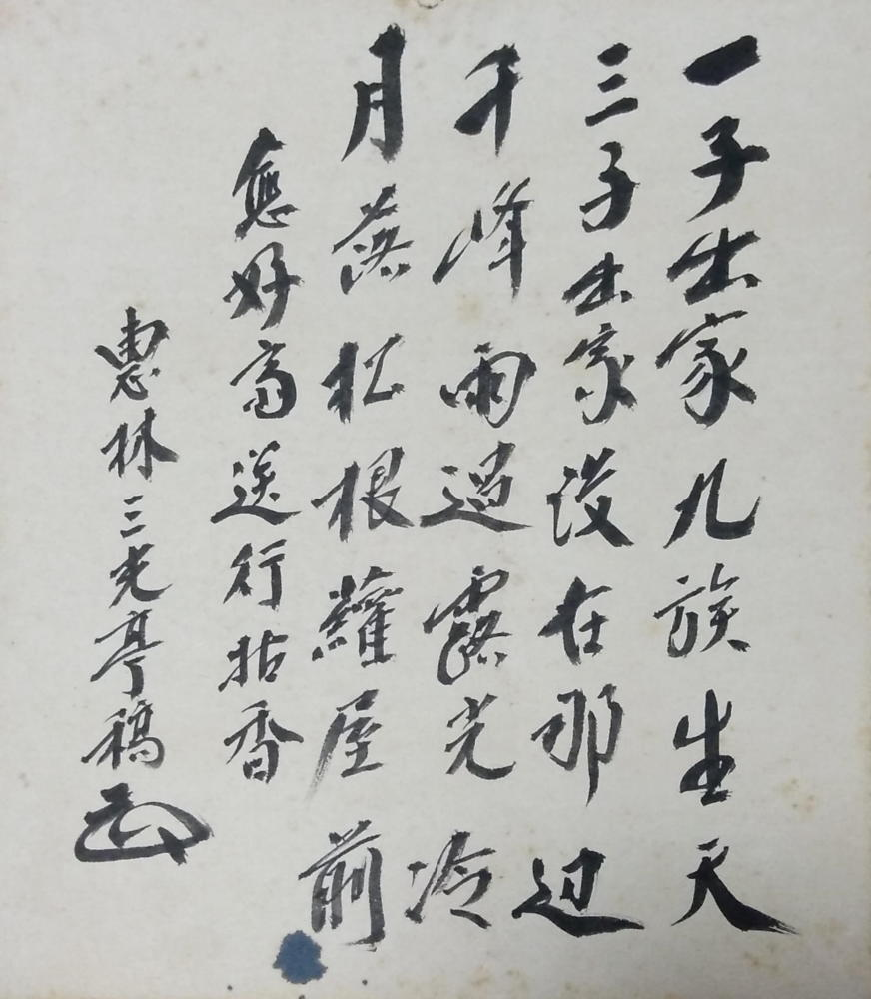 一子出家九族生天
三子出家没在那过
千峰雨过露光冷
月落松根蘿屋前
應好齋送行拈香
惠林三光亭稿